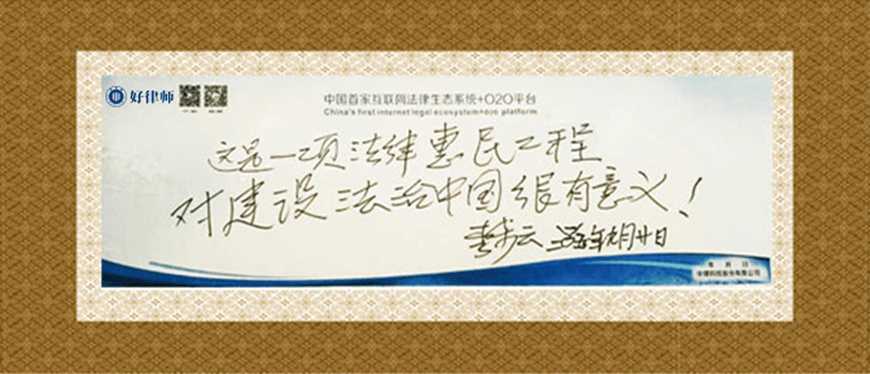 好律师
中国首家互联网法律生态系统+O2O平台
China's first internet legal ecosystem+o2o platform
这是一项法律惠民工程
对建设法治中国很有意义！
李步云 月廿日
年 月 日
科技股份有限公司